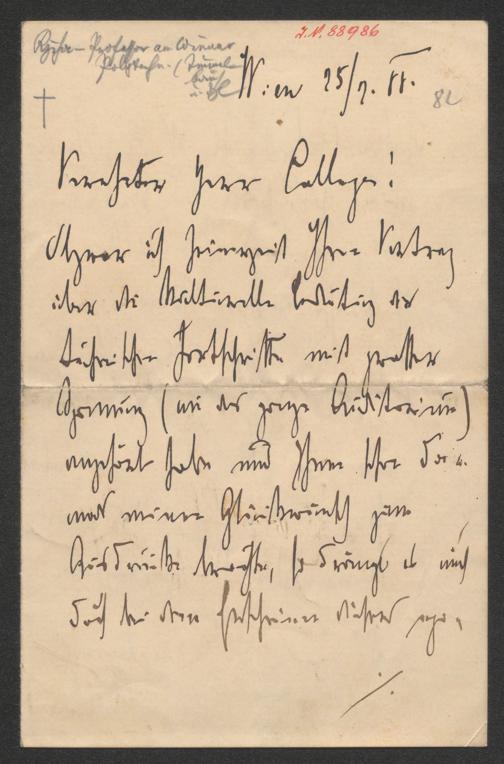 I.N. 88986
Professor am Wiener
Wien 25/2. 88.
82
Verehrter Herr College!
Obzwar ich seinerzeit Ihren Vortrag
über die kulturelle Bedeutung der
technischen Fortschritte mit grosser
Spannung (wie das ganze Auditorium)
angehört habe und Ihnen schon da-
mals meinen Glückwunsch zum
Ausdrucke brachte, so drängt es mich
doch bei dem Erscheinen dieses
./.